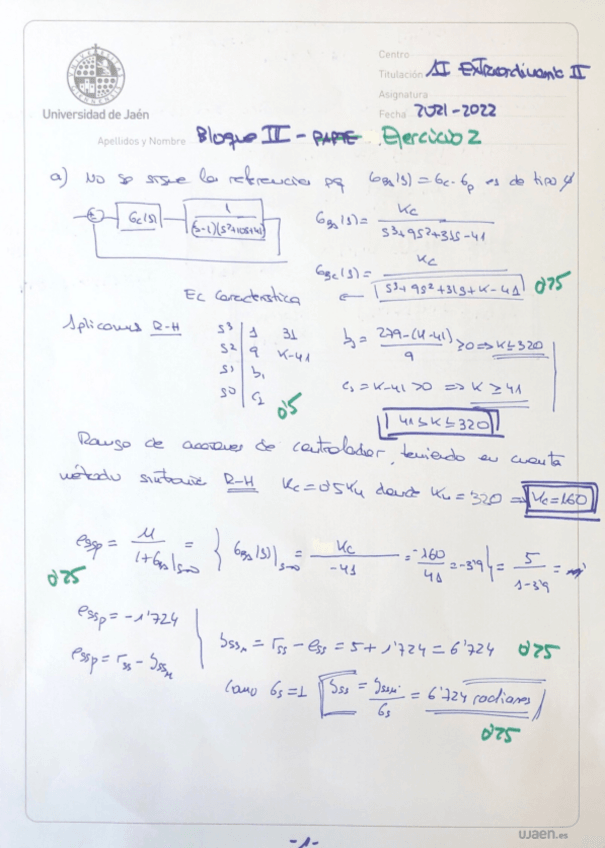 Universidad de Jaén
Centro
Titulación AI Extraordinario II
Asignatura
Fecha 2021-2022
Apellidos y Nombre Bloque II - PARTE Ejercicio 2
a) No se sigue la referencia pq Gba(s) = Gc·Gp es de tipo φ
Gc(s) 1/((s-1)(s²+10s+41))
Gba(s) = Kc/(s³+9s²+31s-41)
Gbc(s) = Kc/(s³+9s²+31s+K-41) 0'25
Ec Característica
Aplicamos R-H
s³ 1 31
s² 9 K-41
s¹ b1
s⁰ c1
0'5
b1 = (279-(K-41))/9 ≥0 ⇒ K≤320
c1 = K-41 >0 ⇒ K ≥ 41
41≤K≤320
Rango de acciones de controlador, teniendo en cuenta
método sintonía R-H Kc=0'5Ku donde Ku = 320 ⇒ Kc=160
essp = M/(1+Gba|s→0) = { Gba(s)|s→0 = Kc/-41 = -160/41 = -3'9 } = 5/(1-3'9) =
0'25
essp = -1'724
essp = rss - yssM
yssM = rss - ess = 5 + 1'724 = 6'724 0'25
Como Gs=1 yss = yssM/Gs = 6'724 radianes
0'25
-1-
ujaen.es